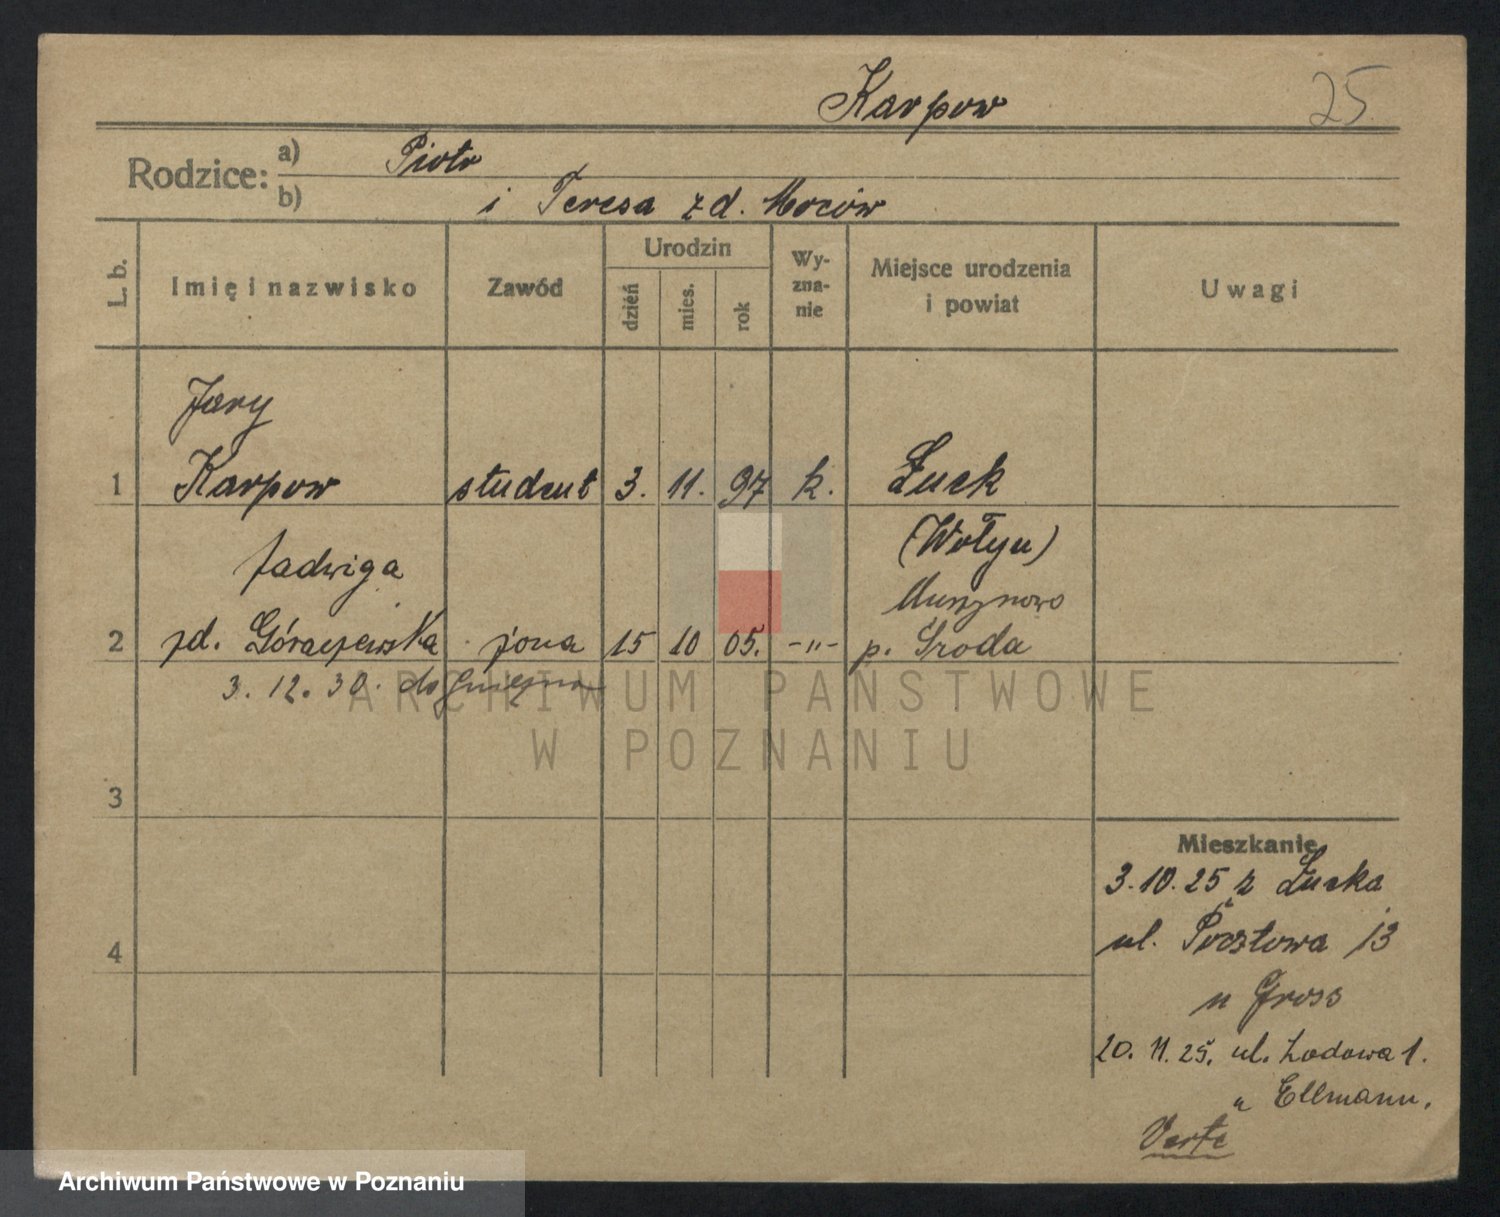 Karpow 25
Rodzice: a) Piotr
b) i Teresa z d. Mrców
L. b. Imię i nazwisko Zawód Urodzin dzień mies. rok Wy-zna-nie Miejsce urodzenia i powiat Uwagi
Jary
1 Karpow student 3. 11. 97 k. Łuck
Jadwiga (Wołyn)
Murzynowo
2 zd. Góraczewska żona 15 10 05. -"- p. Środa
3. 12. 30. do Gniezna
ARCHIWUM PAŃSTWOWE
W POZNANIU
3
Mieszkanie
3. 10. 25 z Łucka
4 ul. Pocztowa 13
u Gross
20. 11. 25. ul. Lodowa 1.
u Ellmann.
Verte
Archiwum Państwowe w Poznaniu